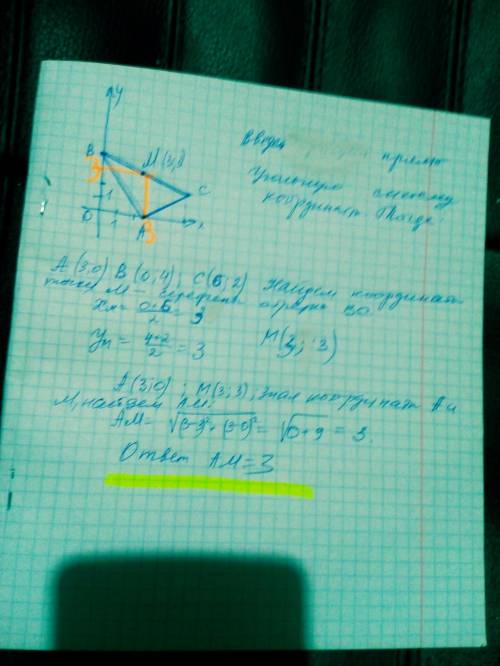 y
B
M(3,
3
C
1
0
1
A
3
x
Введем прямо
угольную систему
координат. Тогда:
A (3;0) B (0;4); C(6;2) Найдем координаты
точки M - середины отрезка BC
Xм = 0+6/2 = 3
Yм = 4+2/2 = 3 M(3; 3)
A(3;0) ; M(3;3), зная координаты A и
M, найдем AM:
AM = √(3-3)²+(3-0)² = √0+9 = 3.
Ответ AM=3